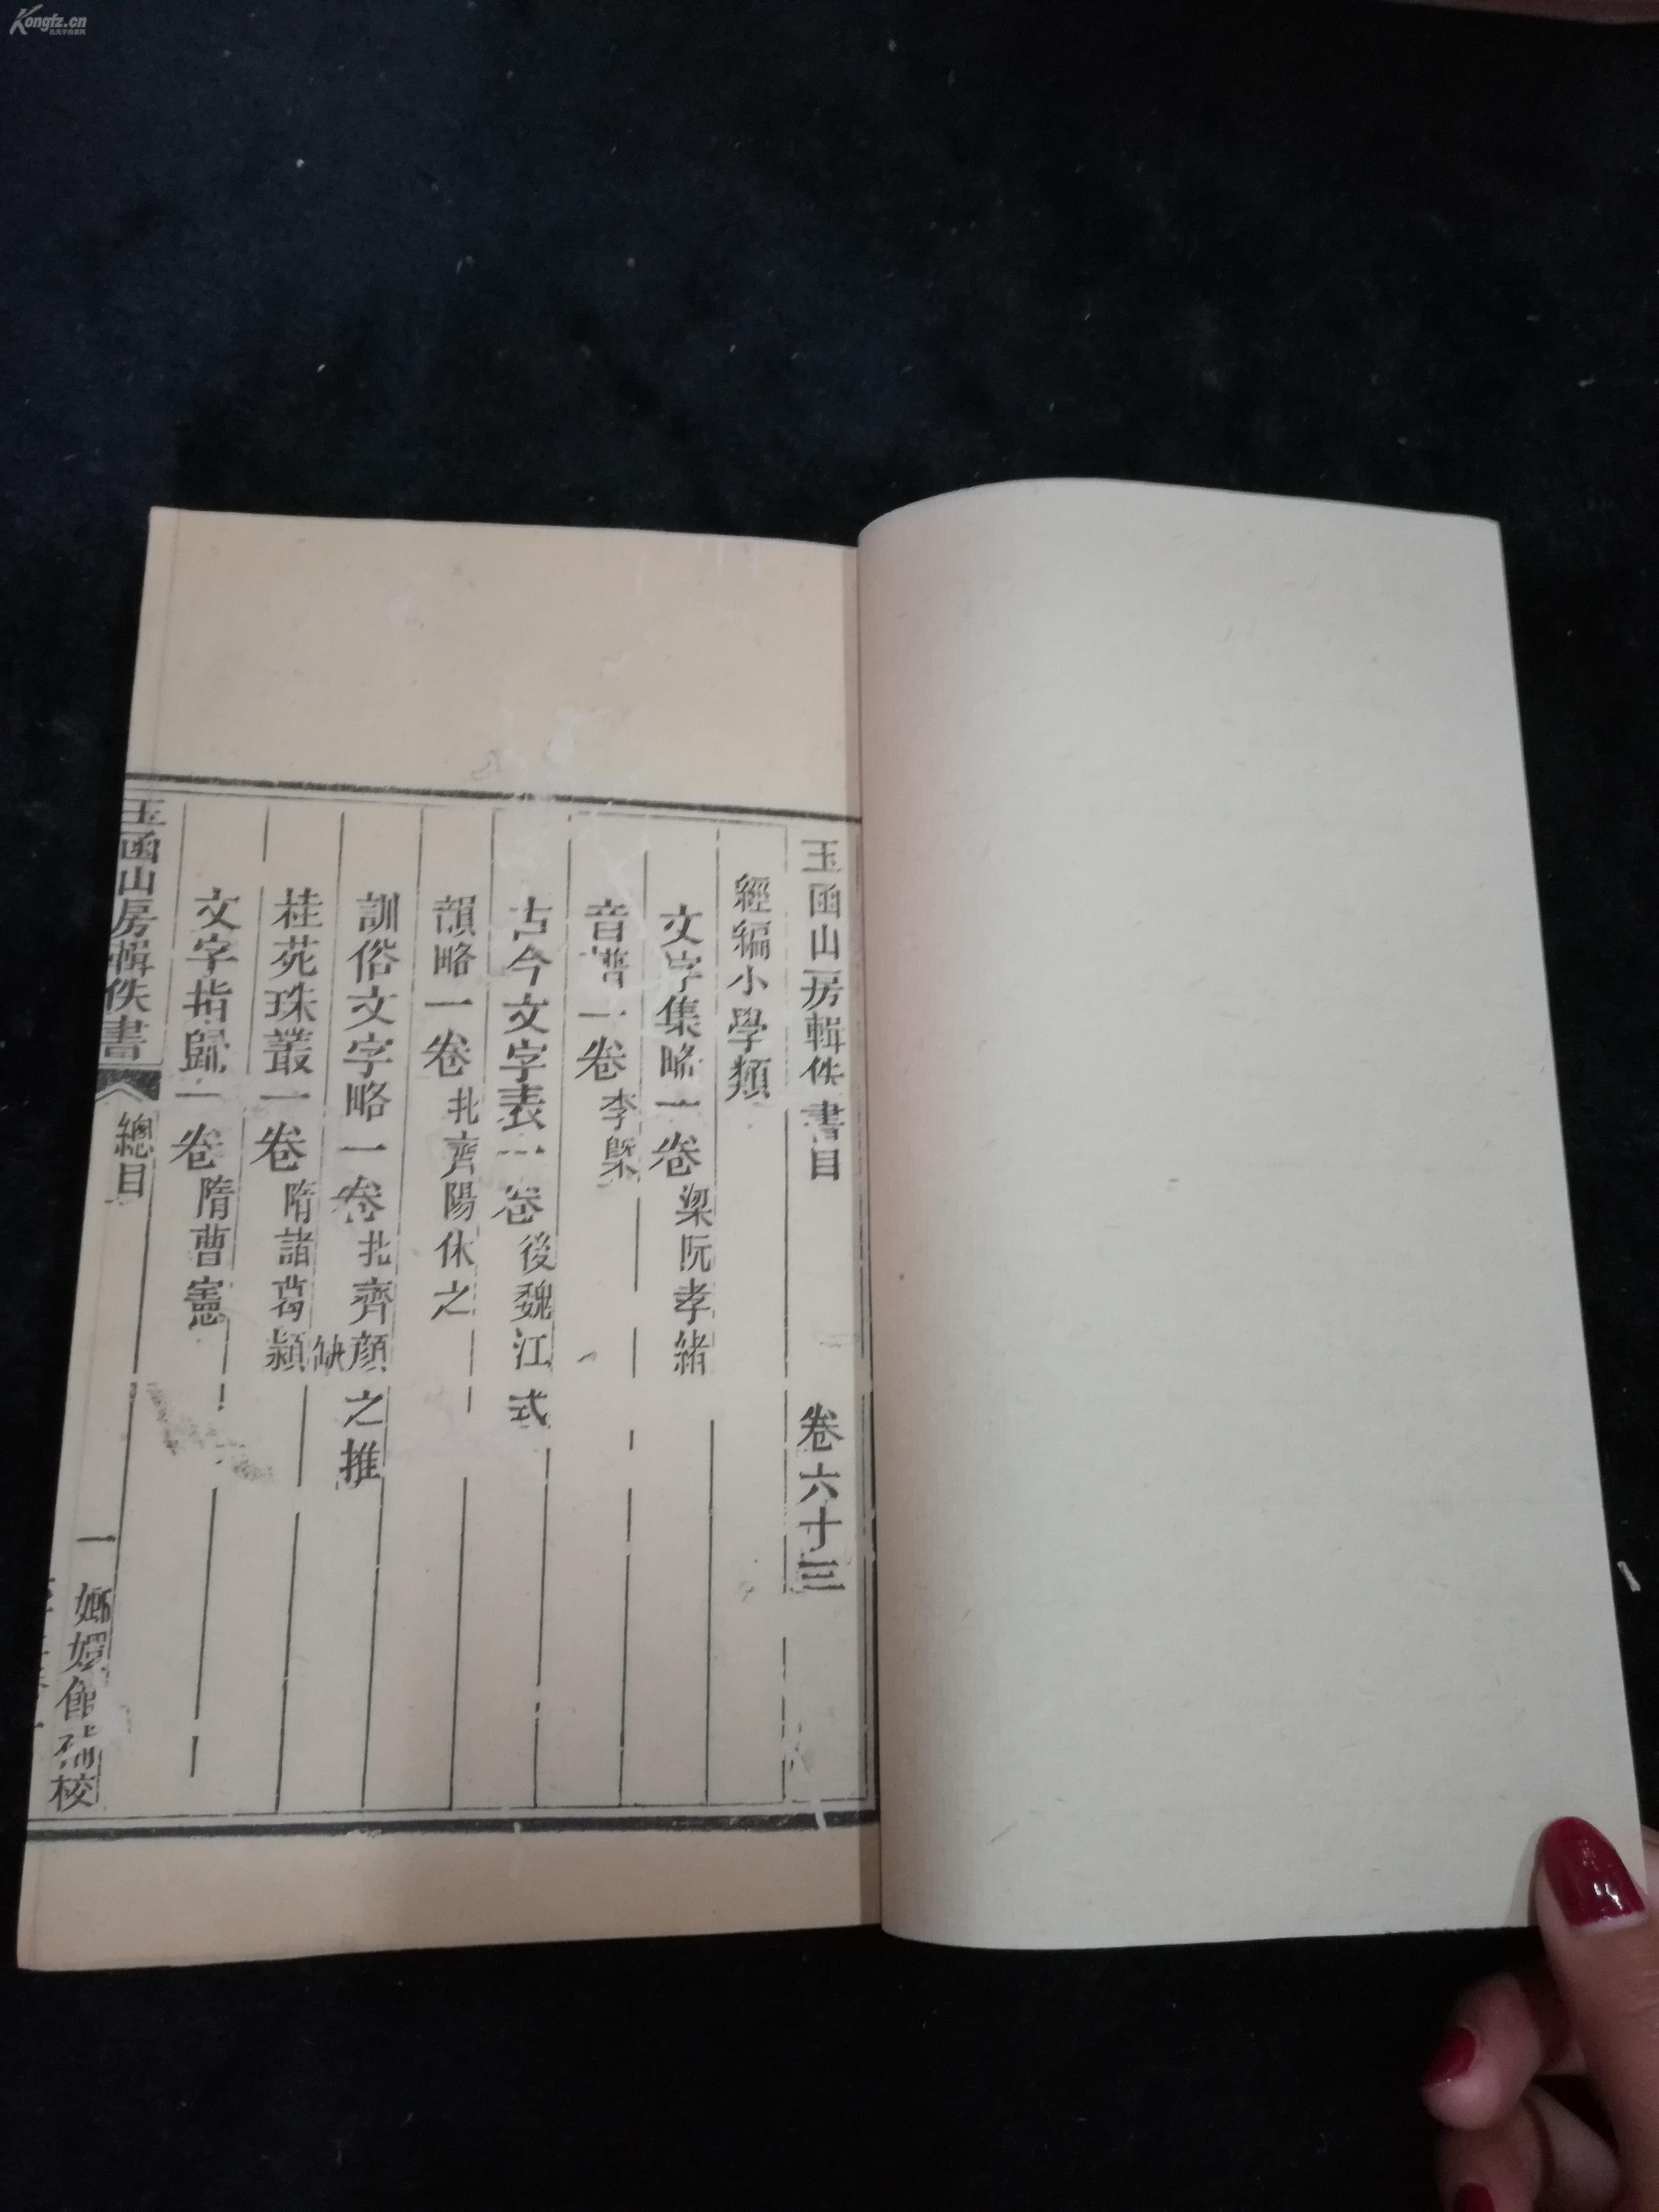 Kongfz.cn
玉函山房輯佚書目 卷六十三
經編小學類
文字集略一卷 梁阮孝緒
音譜一卷 李槩
古今文字表一卷 後魏江式
韻略一卷 北齊陽休之
訓俗文字略一卷 北齊顔之推
缺
桂苑珠叢一卷 隋諸葛潁
文字指歸一卷 隋曹憲
玉函山房輯佚書 總目 一 嫏嬛館補校